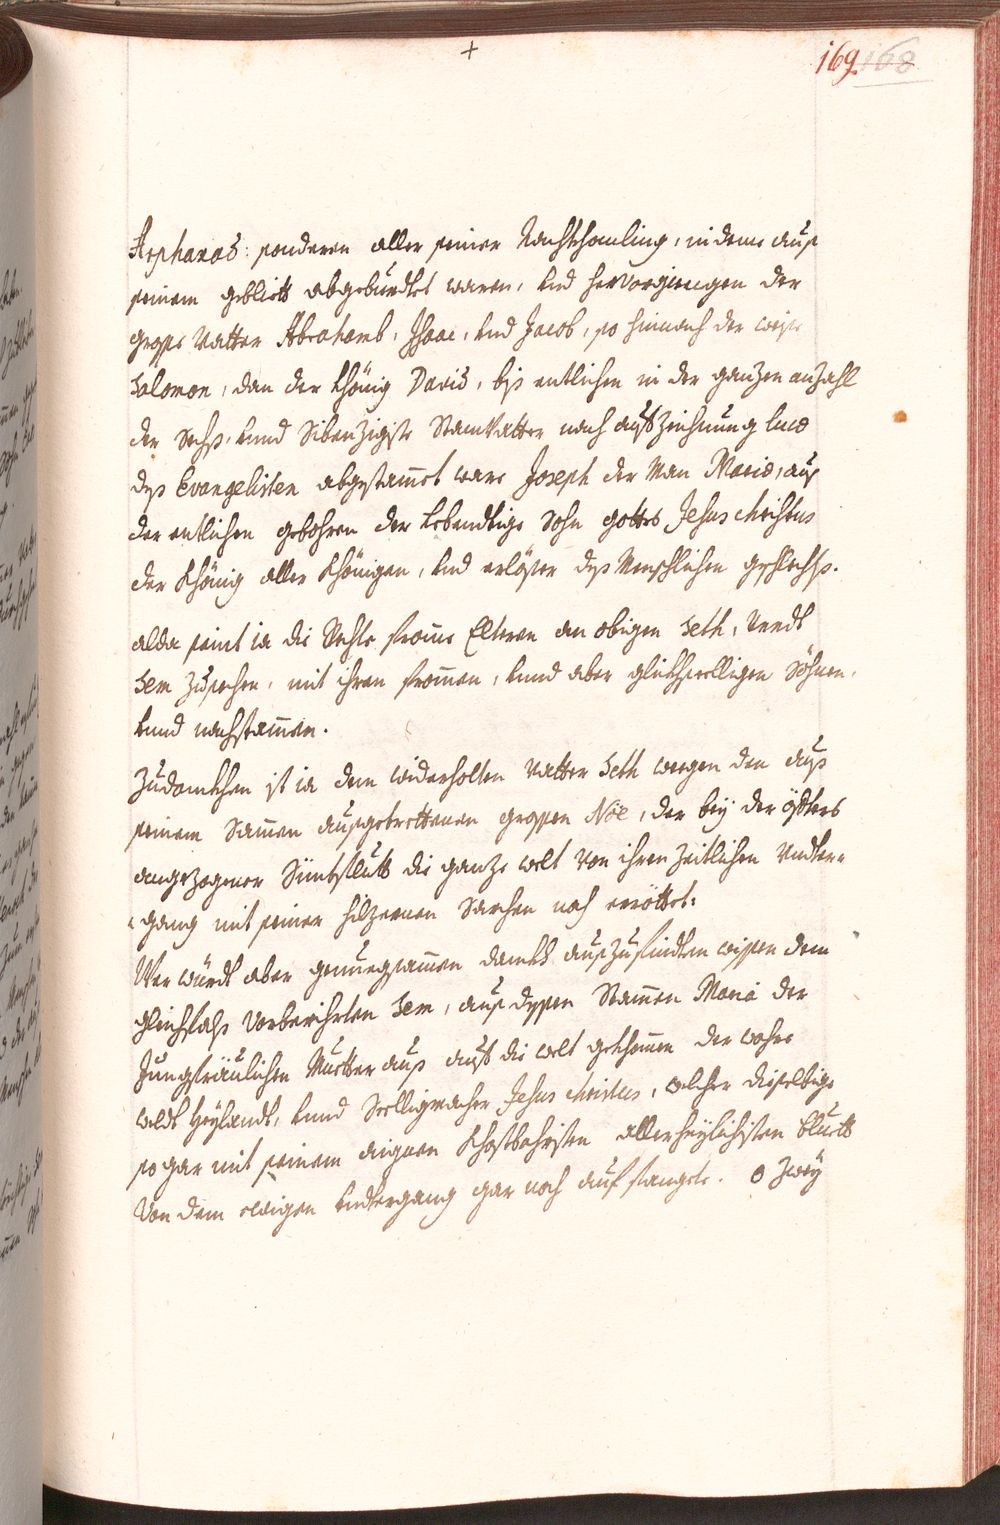 +
169 168
Arphaxad: sonderen aller seiner Nachkhomling, in deme aus
seinem gebliett abgebürdtet waren, und hervorgiengen der
grosse Vatter Abrahamb, Isaac, und Jacob, so hinnach der weise
Salomon, dan der Khönig David, bis entlichen in der ganzen anzahl
der Sechs, unnd Sibenzigste Stamvatter nach aufzeichnung Lucæ
dess Evangelisten abgestamet ware Joseph der Man Mariæ, aus
der entlichen gebohren der Lebendtige Sohn gottes Jesus christus
der Khönig aller Khönigen, und erlöser dess Menschlichen geschlechts.
alda seint ia die Rechte frome Elteren an obigen Seth, Unndt
Sem zusechen, mit ihren fromen, unnd aber glickhseelligen Söhnen,
unnd nachstamen.
Zudankhen ist ia dem widerholten Vatter Seth wegen den aus
seinem Samen ausgebrettenen grossen Nöe, der bey der össters
angezogener Sündtflutt die ganze welt von ihren zeitlichen Under-
-gang mit seiner hilzernen Larchen noch errötet:
Wer würdt aber genuegsamen dankh auszufindten wissen dem
gleichfahls vorberihrten Sem, aus dessen Stamen Maria der
Jungfräulichen Muetter aus auf die welt gekhomen der wahre
welt Heylandt, unnd Seelligmacher Jesus christus, welcher dieselbige
so gar mit seinem aignen Khostbahristen allerheyligisten bluett
von dem ewigen undtergang gar noch auf fangete. O zwey